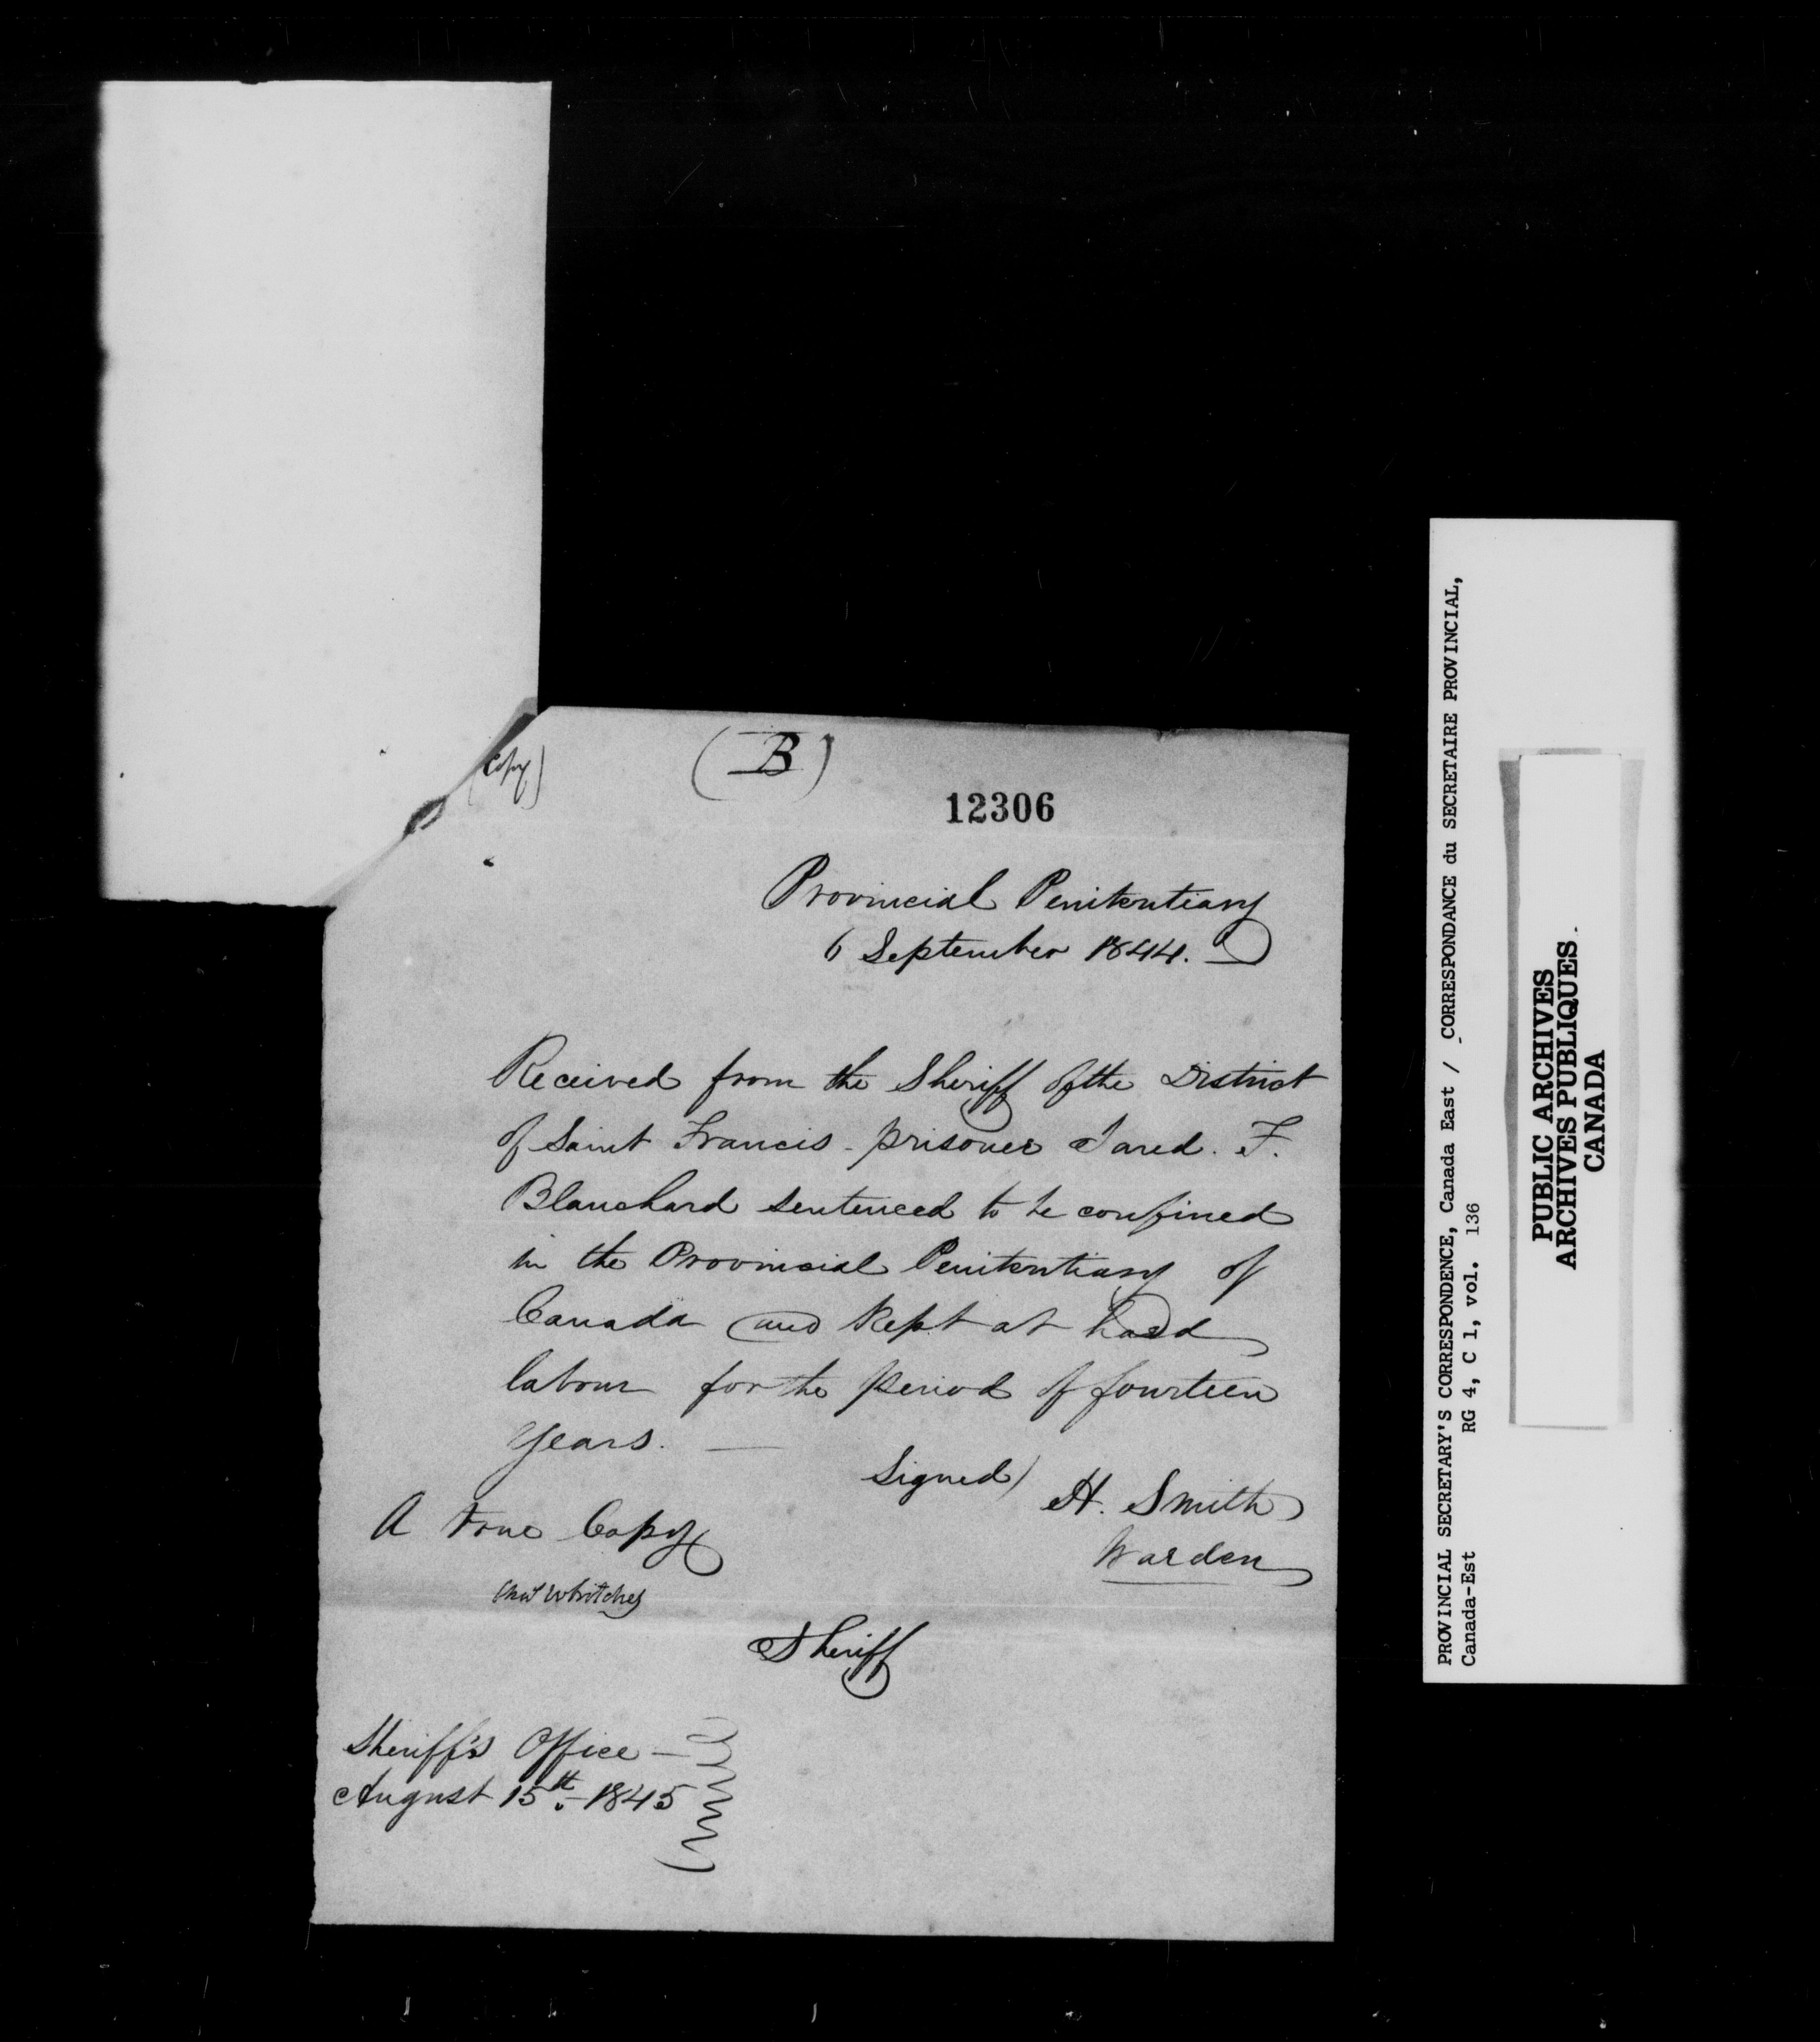 (Copy)
(B)
12306
Provincial Penitentiary
6 September 1844.
Received from the Sheriff of the District
of Saint Francis - prisoner Jared. F.
Blanchard sentenced to be confined
in the Provincial Penitentiary of
Canada and kept at hard
labour for the period of fourteen
Years. —
Signed) H. Smith
Warden
A true Copy
Whitcher
Sheriff
Sheriff's Office —
August 15th. 1845
PROVINCIAL SECRETARY'S CORRESPONDENCE, Canada East / CORRESPONDANCE du SECRETAIRE PROVINCIAL,
Canada-Est RG 4, C 1, vol. 136
PUBLIC ARCHIVES
ARCHIVES PUBLIQUES
CANADA